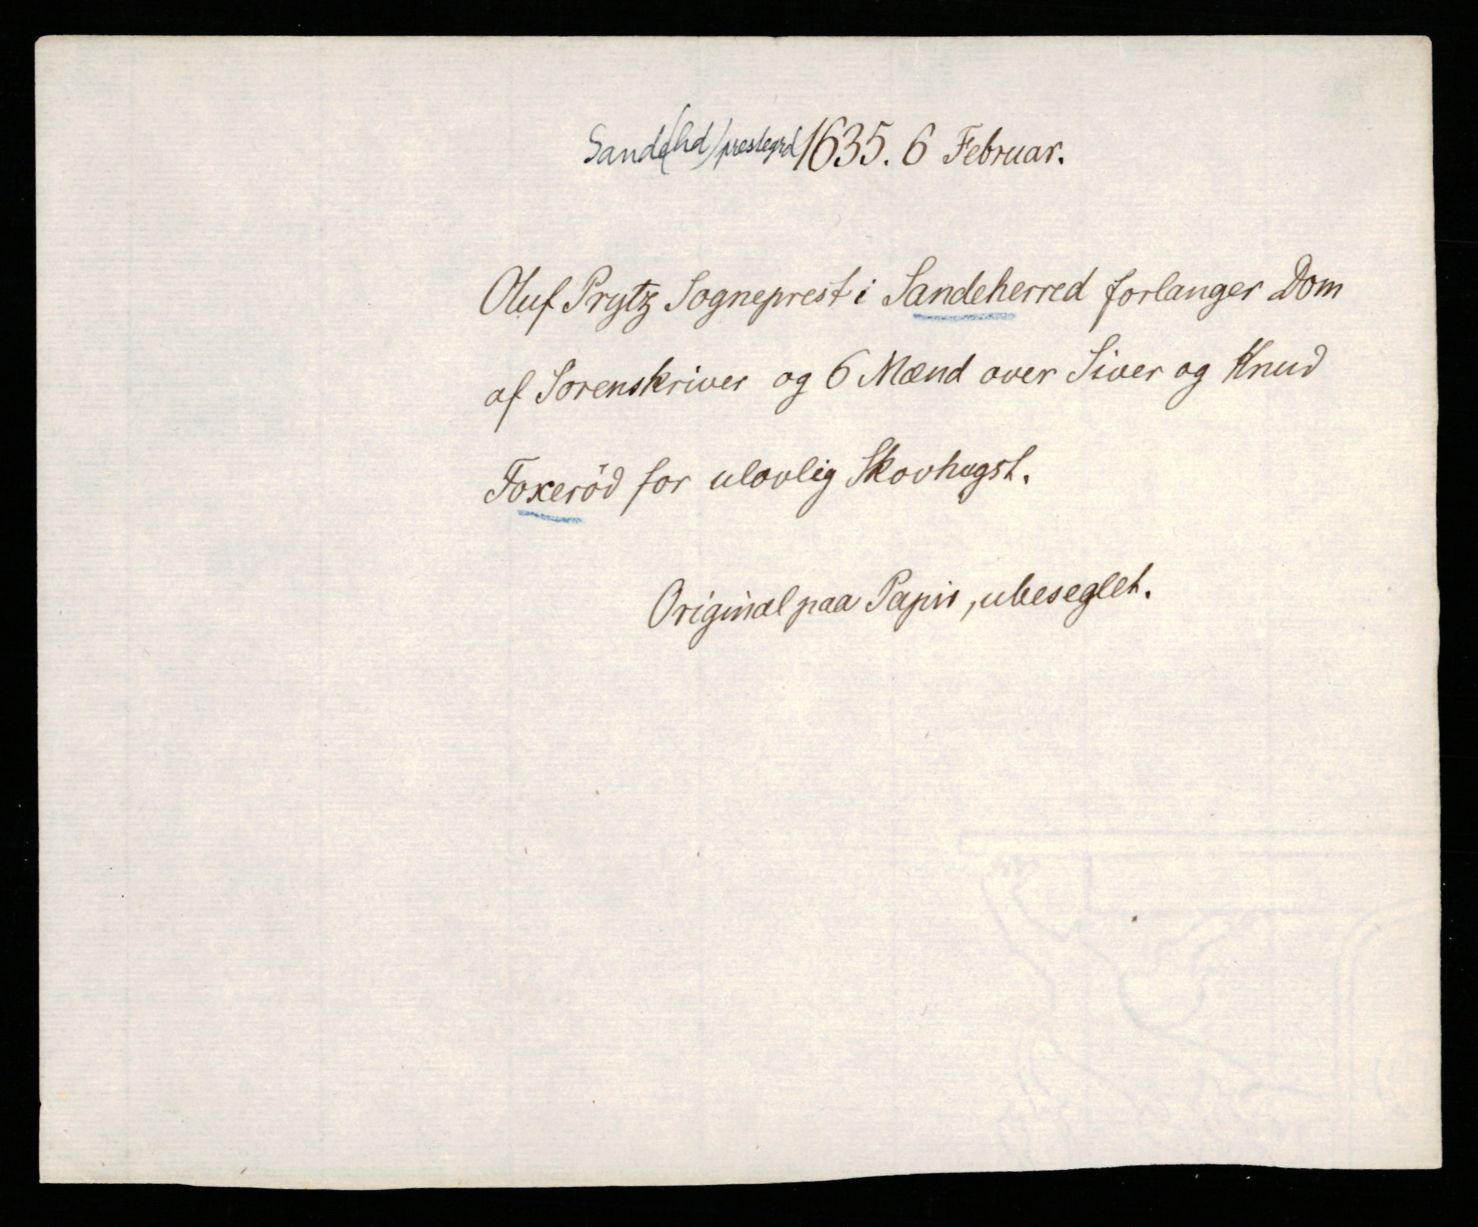 Sande(hd) prestegrd 1635. 6 Februar.
Oluf Prytz Sogneprest i Sandeherred forlanger Dom
af Sorenskriver og 6 Mænd over Siver og Knud
Foxeröd for ulovlig Skovhugst.
Original paa Papir, ubeseglet.